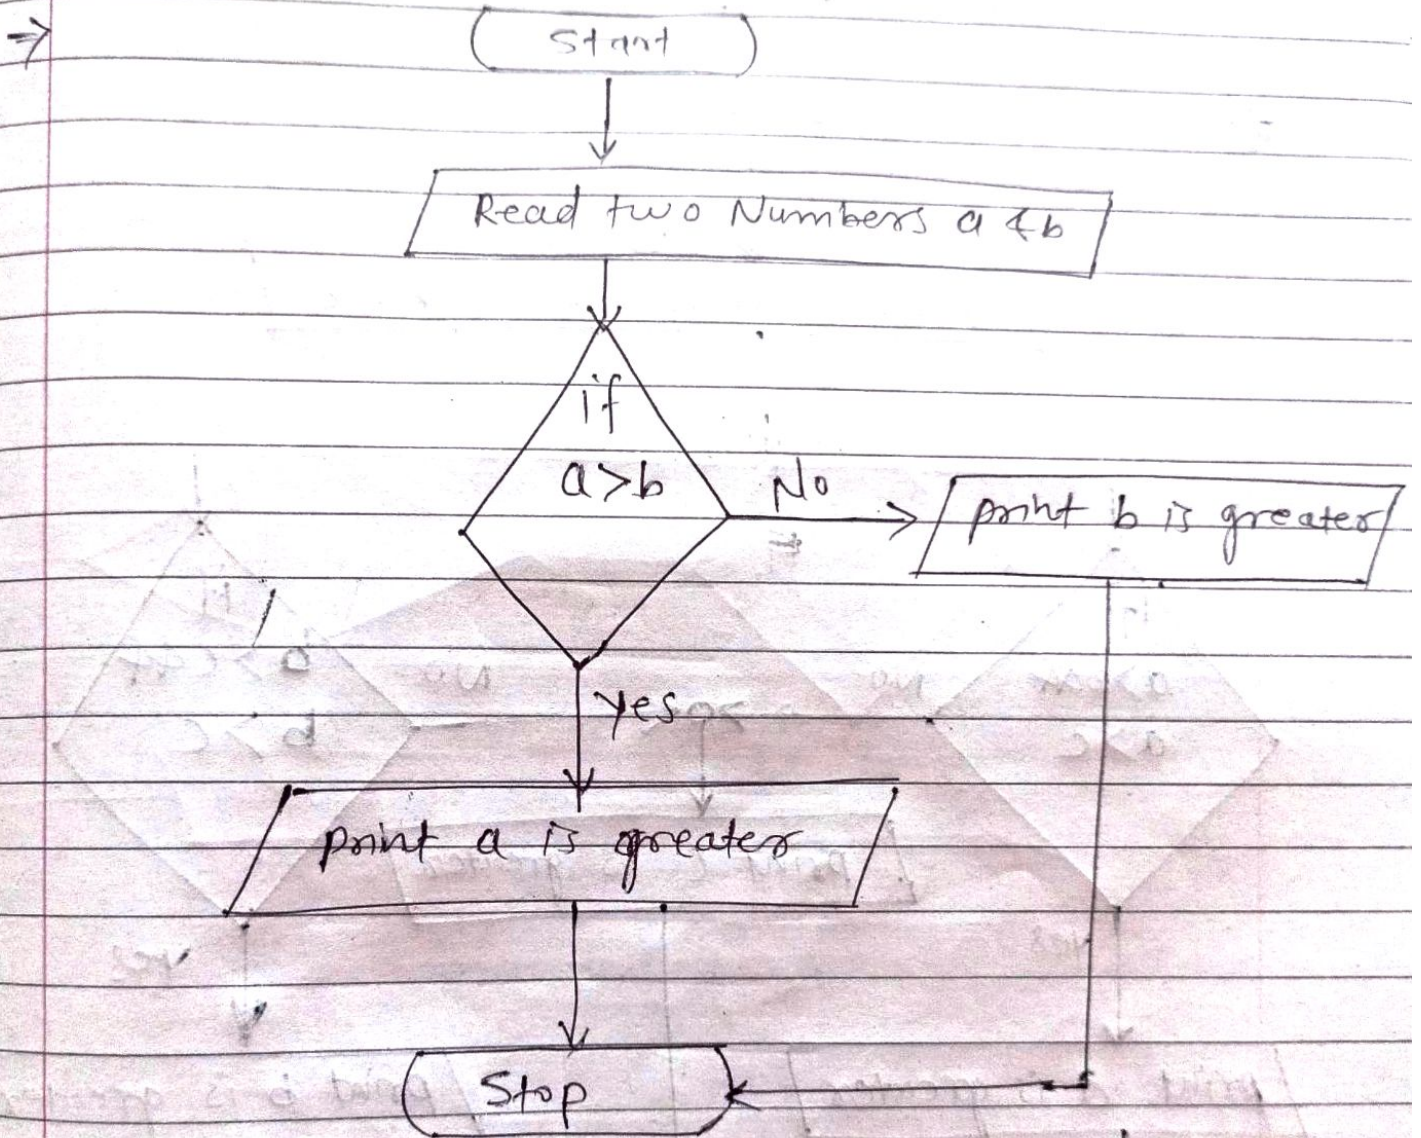 Start
Read two Numbers a & b
if
a>b
No
print b is greater
yes
print a is greater
Stop